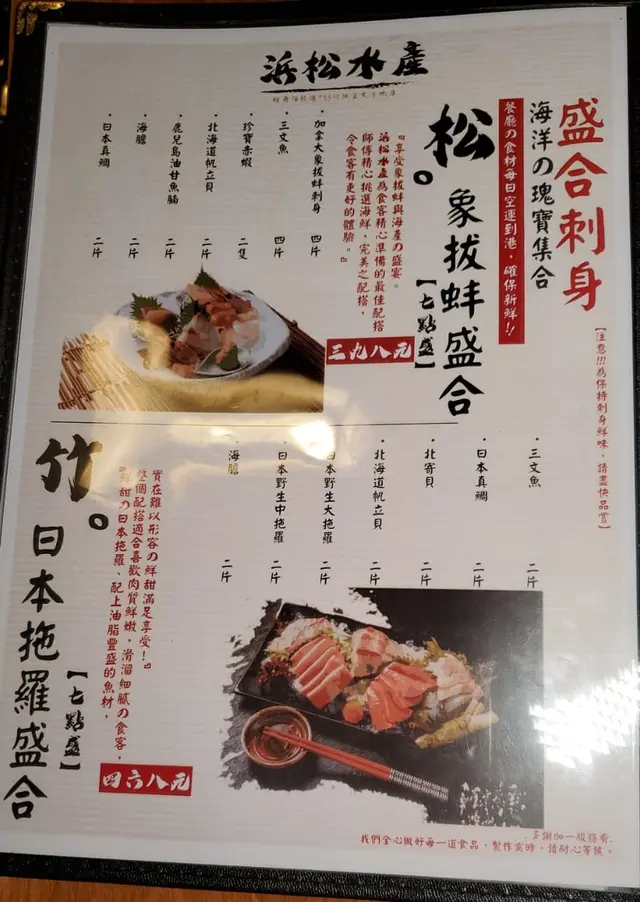 浜松水產
盛合刺身
海洋の瑰寶集合
餐廳の食材每日空運到港，確保新鮮!!
【注意!!!為保持刺身鮮味，請盡快品嘗】
松。
象拔蚌盛合
【七點盛】
『享受象拔蚌與海產の盛宴。
浜松水產為食客精心準備的最佳配搭
師傅精心挑選海鮮，完美之配搭，
令食客有更好的體驗。』
三九八元
・加拿大象拔蚌刺身 四片
・三文魚 四片
・珍寶赤蝦 二隻
・北海道帆立貝 二片
・鹿兒島油甘魚腩 二片
・海膽 二片
・日本真鯛 二片
・三文魚 二片
・日本真鯛 二片
・北寄貝 二片
・北海道帆立貝 二片
・日本野生大拖羅 二片
・日本野生中拖羅 二片
・海膽 二片
實在難以形容の鮮甜滿足享受!』
整個配搭適合喜歡肉質鮮嫩，滑溜細膩の食客，
『鮮甜の日本拖羅、配上油脂豐盛的魚材，
四六八元
竹。
日本拖羅盛合
【七點盛】
多謝加一服務費.
我們全心做好每一道食品，製作需時，請耐心等候。